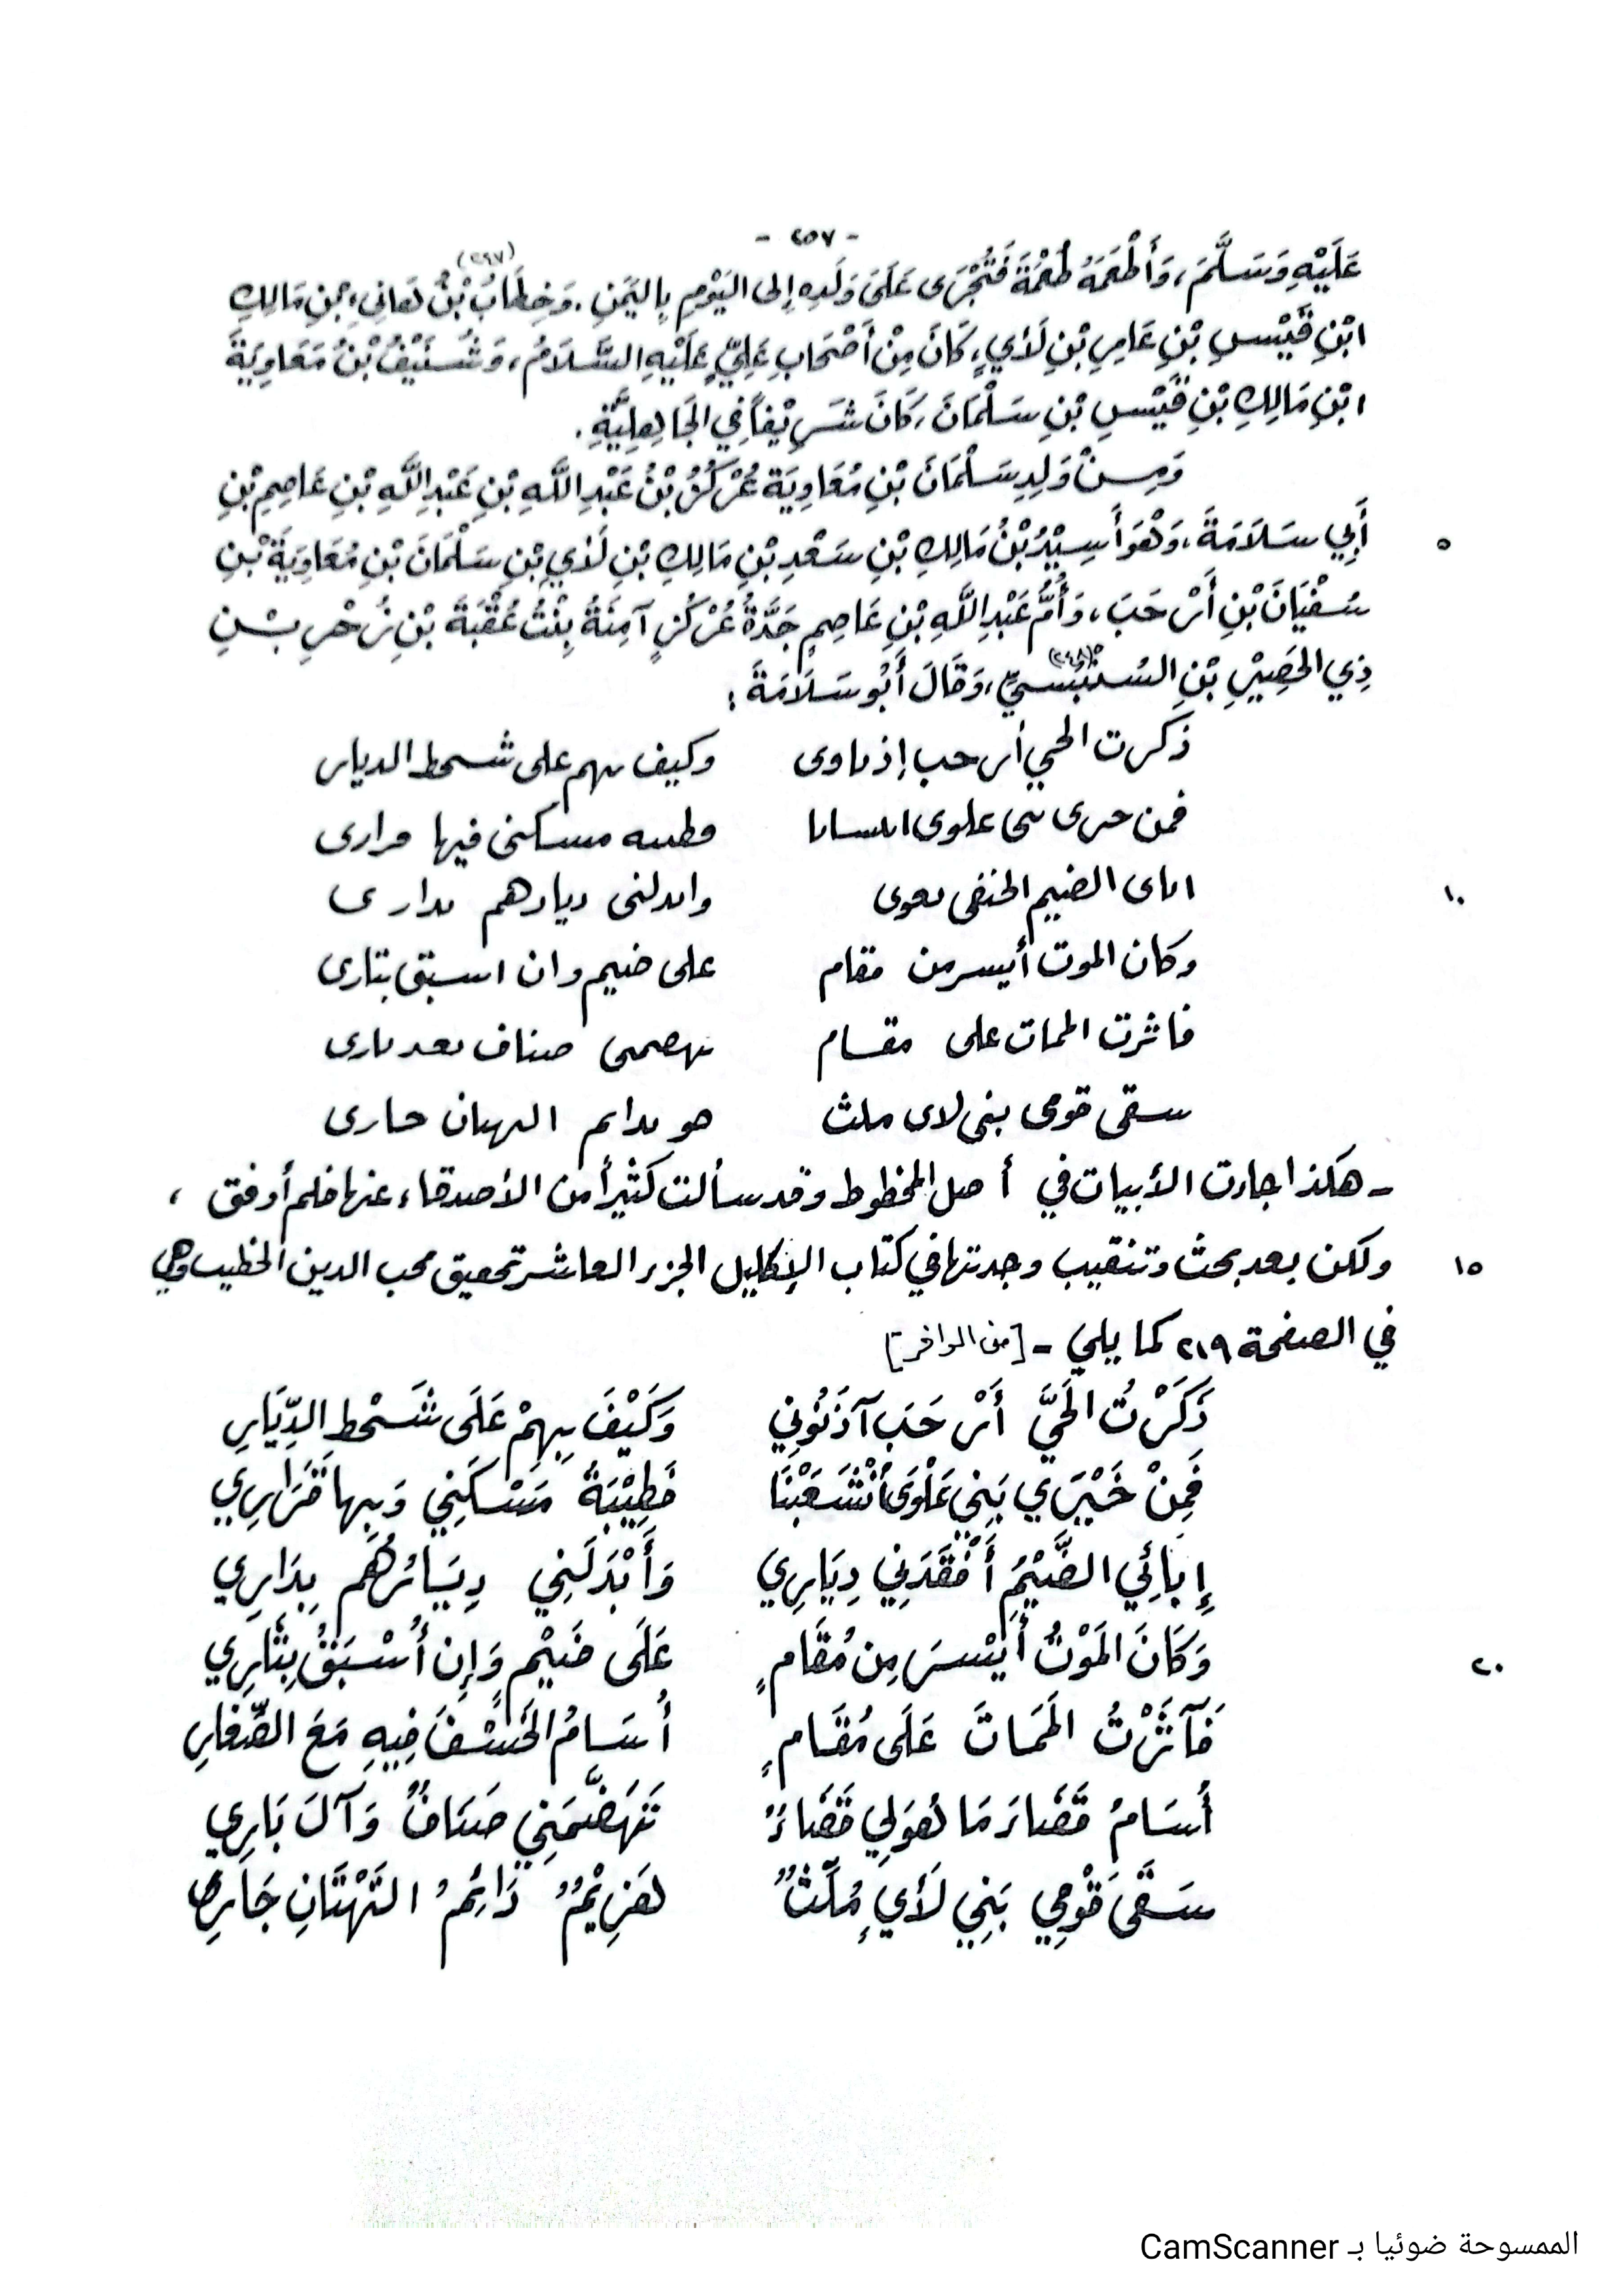 - ٢٥٧ -
عَلَيْهِ وَسَلَّمَ، وَأَطْعَمَهُ طُعْمَةً فَتُجْرَى عَلَى وَلَدِهِ إِلى اليَوْمِ بِاليَمَنِ. وَخِطَابُ بْنُ هَانِيءِ بْنِ مَالِكِ (٢٩٧)
ابْنِ قَيْسِ بْنِ عَامِرِ بْنِ لَأْيٍ، كَانَ مِنْ أَصْحَابِ عَلِيٍّ عَلَيْهِ السَّلَامُ، وَشُنَيْفُ بْنُ مَعَاوِيَةَ
ابْنِ مَالِكِ بْنِ قَيْسِ بْنِ سَلْمَانَ، كَانَ شَرِيْفاً فِي الجَاهِلِيَّةِ.
وَمِنْ وَلِدِ سَلْمَانَ بْنِ مُعَاوِيَةَ عُرْكُزُ بْنُ عَبْدِ اللَّهِ بْنِ عَبْدِ اللَّهِ بْنِ عَاصِمِ بْنِ
٥ أَبِي سَلَامَةَ، وَهْوَ أَسِيْدُ بْنُ مَالِكِ بْنِ سَعْدِ بْنِ مَالِكِ بْنِ لَأْيِ بْنِ سَلْمَانَ بْنِ مُعَاوِيَةَ بْنِ
سُفْيَانَ بْنِ أَرْحَبَ، وَأُمُّ عَبْدِ اللَّهِ بْنِ عَاصِمٍ جَدَّةُ عُرْكُزٍ آمِنَةُ بِنْتُ عُقْبَةَ بْنِ زُحْرِ بْنِ
ذِي الحَصِيْرِ بْنِ السُنْبُسيِّ (٢٤٨)، وَقَالَ أَبُو سَلَامَةَ:
ذكرت الحي أرحب إذ ماوى وكيف بهم على شحط الديار
فمن حرى بنى علوى وطسه مسكنى فيها مرارى
١٠ اماى الضيم الحنفى بعوى وابدلنى ديارهم بدارى
وكان الموت أيسر من مقام على ضيم وان اسبق بتارى
فاثرت الممات على مقسام تهصمى صناف بعد بارى
سقى قومى بنى لاى ملث هو بدايم الهتان حارى
- هكذا جاءت الأبيات في أصل المخطوط وقد سألت كثيراً من الأصدقاء عنها فلم أوفق ،
١٥ ولكن بعد بحث وتنقيب وجدتها في كتاب الإكليل الجزء العاشر تحقيق محب الدين الخطيب وهي
في الصفحة ٢١٩ كما يلي - [من الوافر]
ذَكَرْتُ الحَيَّ أَرْحَبَ آذَنُونِي وَكَيْفَ بِهِمْ عَلَى شَحْطِ الدِّيَارِ
فَمِنْ خَيْرَي بَنِي عَلْوَى انْشَعَبْنَا فَطِيْبَةُ مَسْكَنِي وَبِهَا قَرَارِي
إِبَائِي الضَّيْمَ أَفْقَدَنِي دِيَارِي وَأَبْدَلَنِي دِيَارُهُم بِدَارِي
٢٠ وَكَانَ المَوْتُ أَيْسَرَ مِن مُقَامٍ عَلَى ضَيْمٍ وَإِن أُسْبَقْ بِثَأرِي
فَآثَرْتُ المَمَاتَ عَلَى مُقَامٍ أُسَامُ الخَسْفَ فِيهِ مَعَ الصِّغَارِ
أُسَامُ قَضَاءَ مَا هُوَ لِي قَضَاءٌ تَهَضَّمَنِي صَنَافٌ وَآلَ بَارِي
سَقَى قَوْمِي بَنِي لَأْيٍ مُلِثٌّ هَزِيْمٌ دَائِمُ التَّهْتَانِ جَارِي
الممسوحة ضوئيا بـ CamScanner